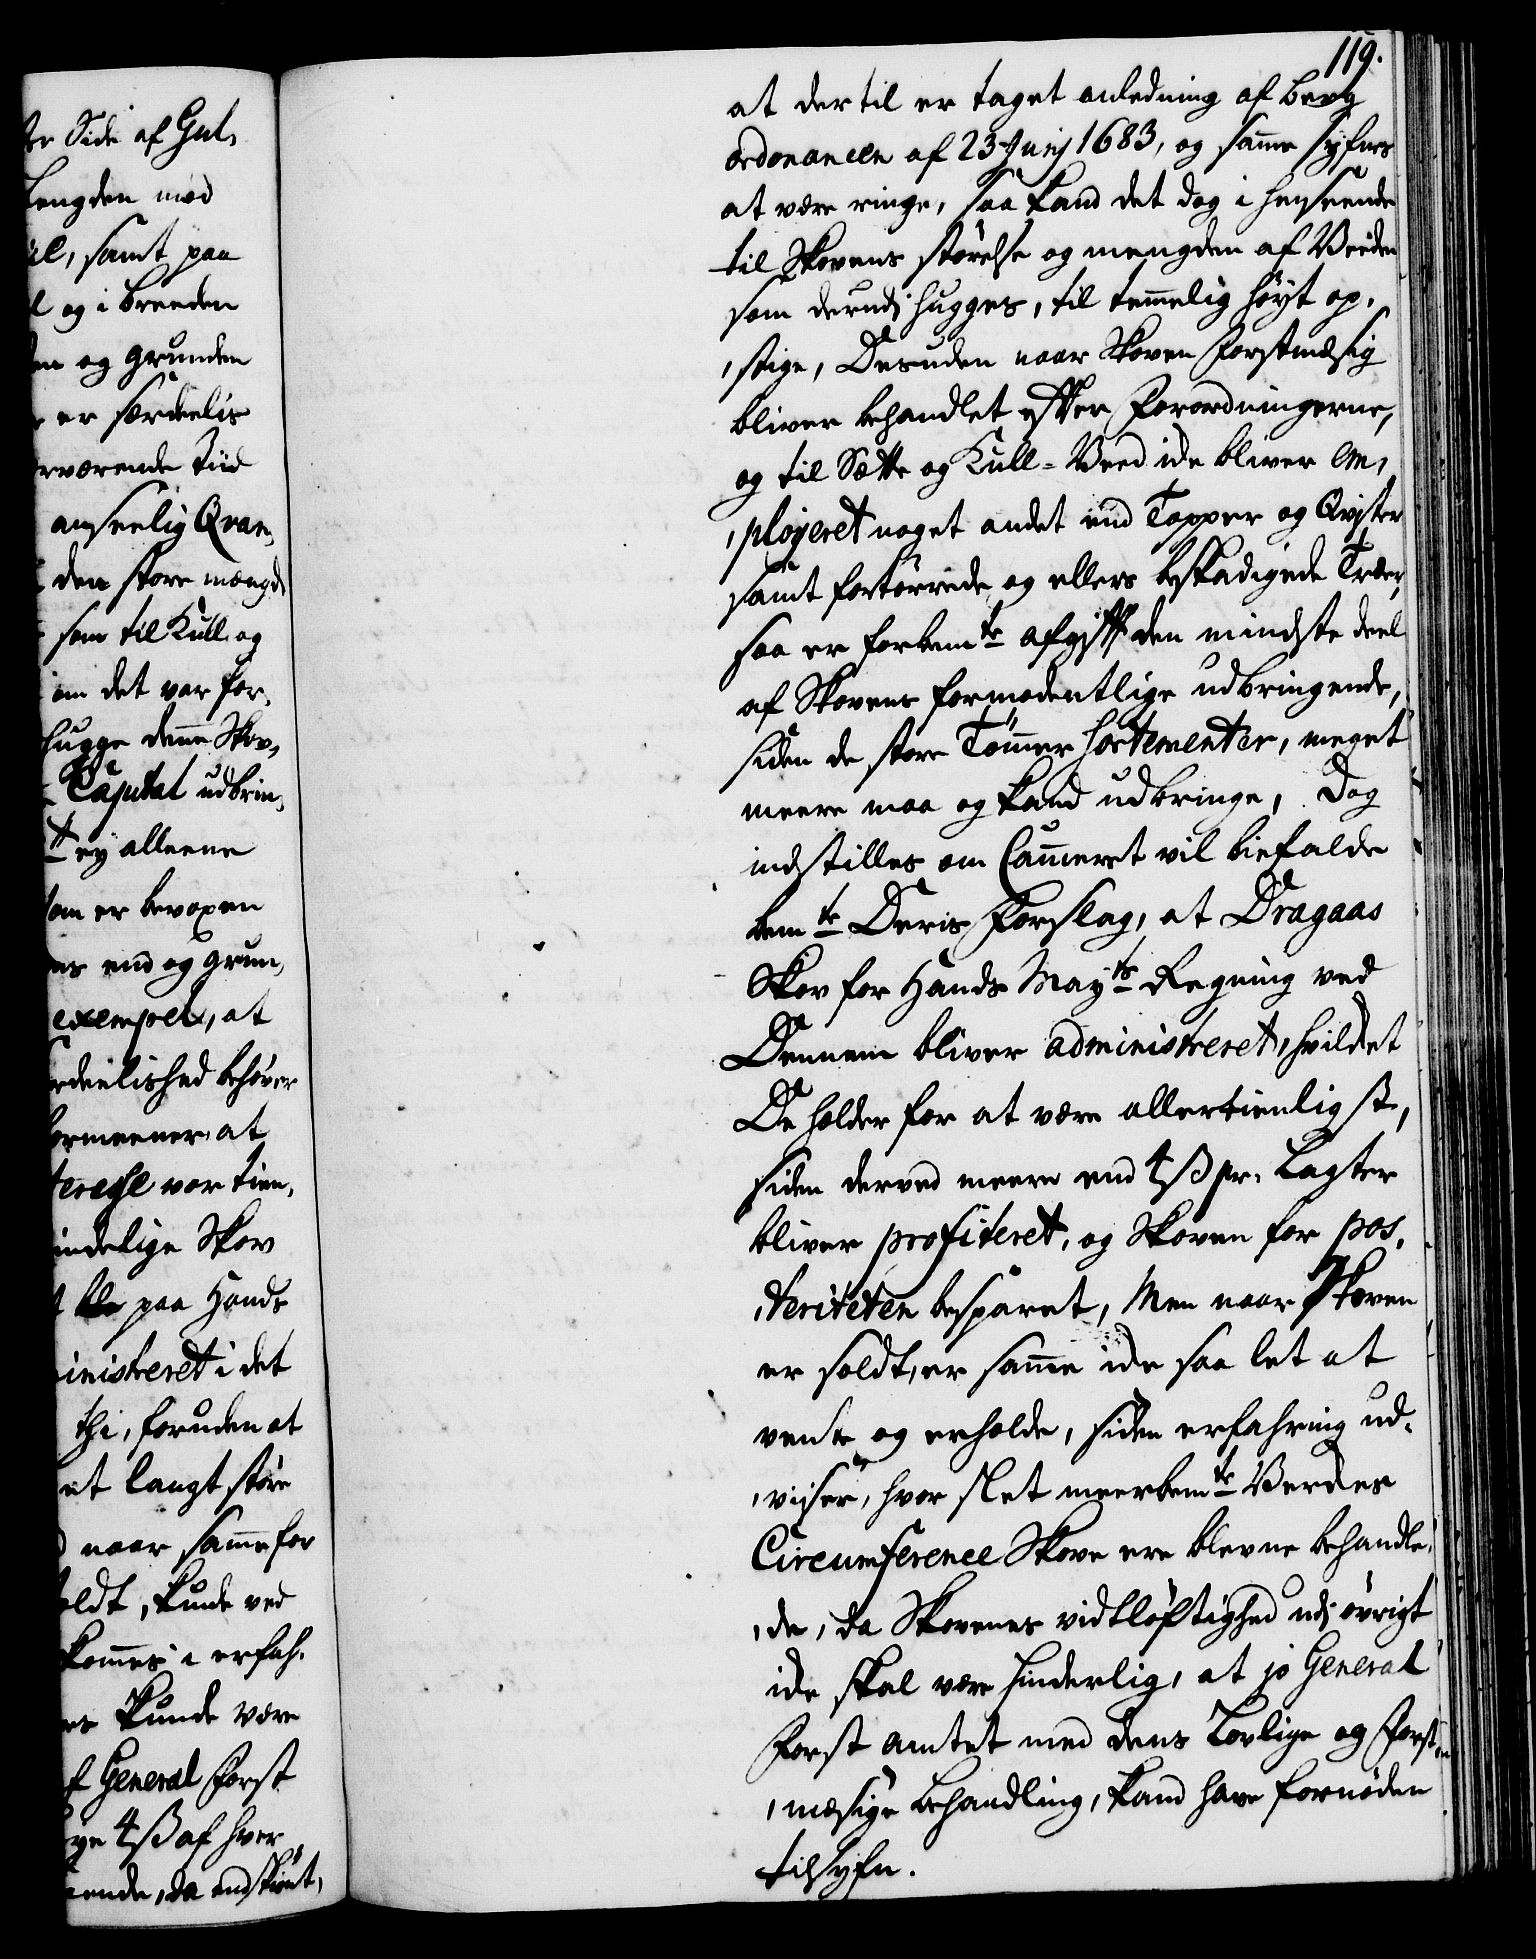 119.
at dertil er taget anledning af berg
ordonancen af 23 Junij 1683, og samme syfnes
at være ringe, saa kand det dog i henseende
til Skovens størelse og mengden af Veeden
som derudj hugges, til temmelig høyt op,
,stige, Desuden naar Skoven Forstmæsig
bliver behandlet efter Forordningerne,
og til Sætte og Kull-Veed icke bliver em,
,ployeret noget andet end Topper og Qvister
samt fortørrede og ellers beskadigede Træer,
saa er forbemte afgift den mindste deel
af Skovens formodentlige udbringende,
siden de store Tømmer Sortementer, meget
meere maa og kand udbringe, Dog
indstilles om Cammeret vil biefalde
bemte Deris Forslag, at Dragaas
Skov for Hands Mayts Regning ved
Dennem bliver administreret, hvilcket
De holder for at være allertienligst,
siden derved meere end 4 ß pr. Lagter
bliver profiteret, og Skoven for pos,
,teriteten besparet, Men naar Skoven
er soldt, er samme icke saa let at
vente og erholde, siden erfahring ud,
,viser, hvor slet meerbemte Verckes
Circumference Skove ere blevne behandle,
,de, da Skovenes vidtløftighed udj øvrigt
icke skal være hinderlig, at jo General
Forst amtet med dens Lovlige og Forst,
,mæsige behandling, kand have fornøden
tilsyfn.
te Side af Gul,
Lengden med
il, samt paa
l og i breeden
en og grunden
er særdeelis
rværende Tiid
anseelig Qvan,
den store mængde
som til Kull og
om det var for,
hugge denne Skov,
Capital udbrin,
te ey alleene
som er bevoxen
es end og grun,
exempel, at
rdeelished behøver
ormeener at
teresse var tien,
indelige Skov
t paa Hands
inistreret i det
thi, foruden at
et langt støre
naar samme for
oldt, kunde ved
kommes i erfah,
es kunde være
f General Forst
ye 4 ß af hver
eende, da endskiønt,